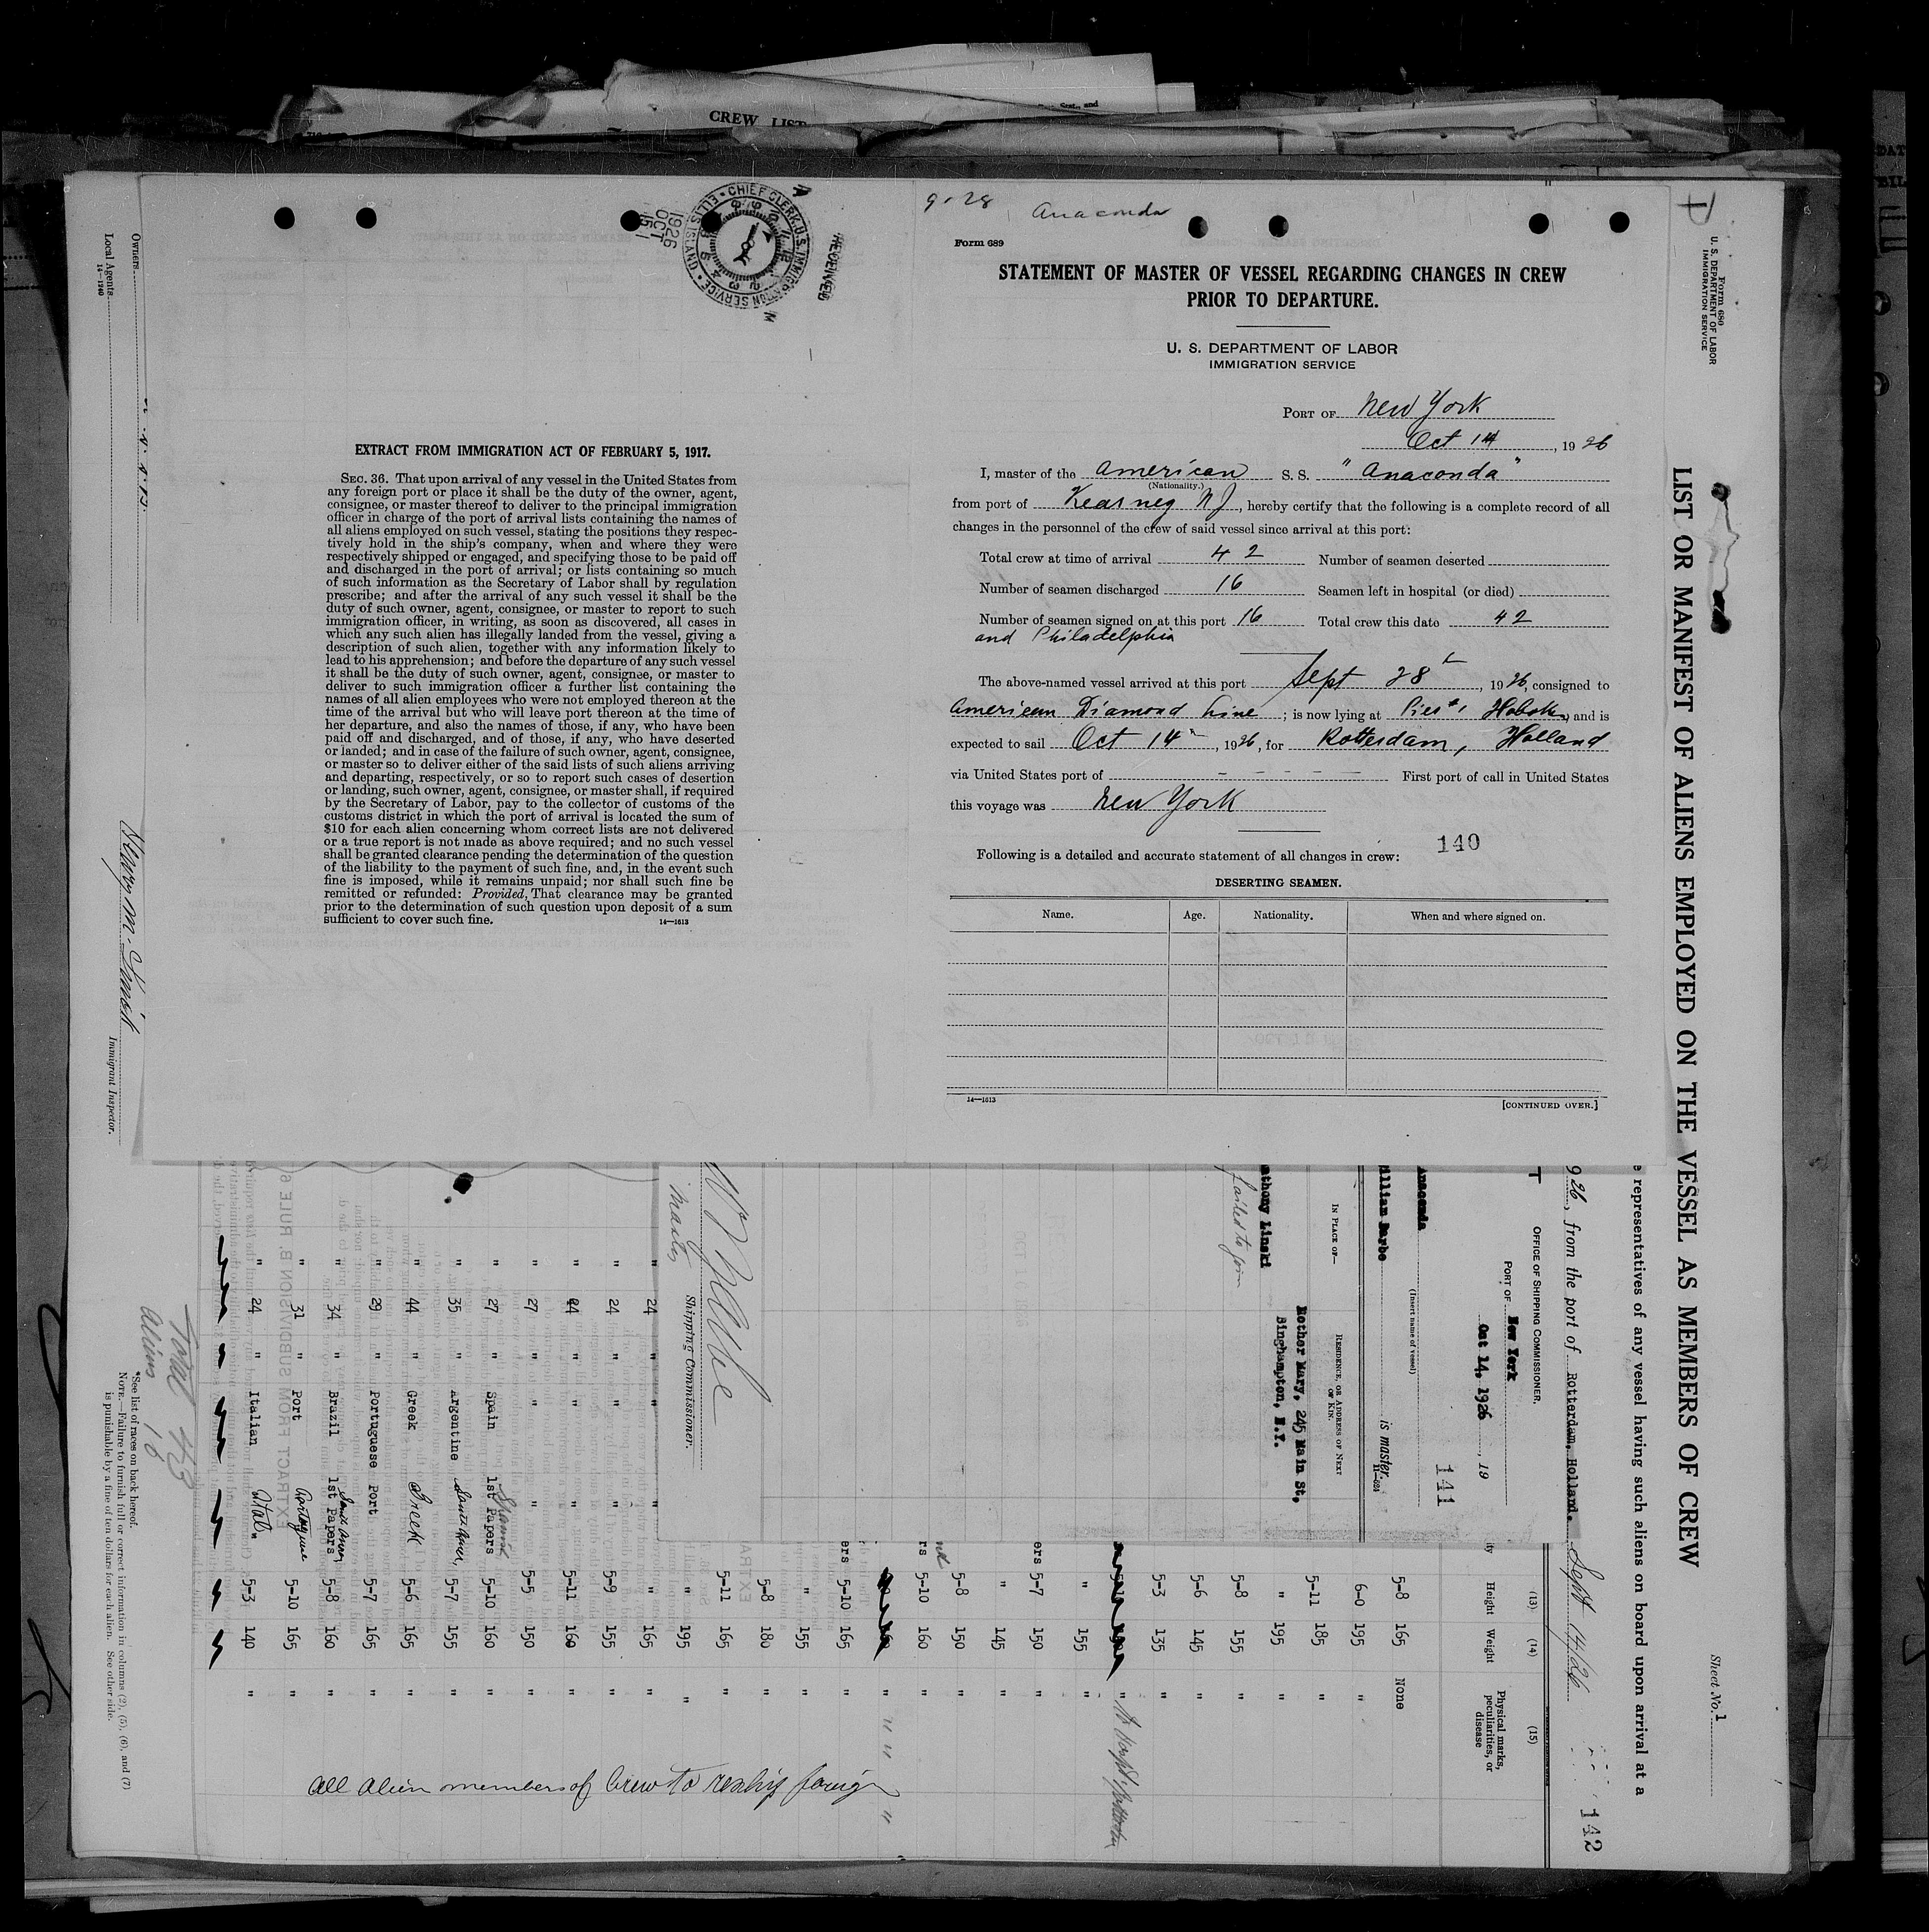 CREW LIST
State, and
CHIEF CLERK, U.S. IMMIGRATION SERVICE
ELLIS ISLAND
RECEIVED
1926
OCT
9-28 Anaconda
Form 689
STATEMENT OF MASTER OF VESSEL REGARDING CHANGES IN CREW
PRIOR TO DEPARTURE.
U. S. DEPARTMENT OF LABOR
IMMIGRATION SERVICE
PORT OF New York
Oct 14, 1926
I, master of the American S. S. "Anaconda"
(Nationality.)
from port of Kearney NJ, hereby certify that the following is a complete record of all
changes in the personnel of the crew of said vessel since arrival at this port:
Total crew at time of arrival 42 Number of seamen deserted
Number of seamen discharged 16 Seamen left in hospital (or died)
Number of seamen signed on at this port 16 Total crew this date 42
and Philadelphia
The above-named vessel arrived at this port Sept 28, 1926, consigned to
American Diamond Line; is now lying at Pier #1 Hobok, and is
expected to sail Oct 14, 1926, for Rotterdam, Holland
via United States port of - - - - - First port of call in United States
this voyage was New York
140
Following is a detailed and accurate statement of all changes in crew:
DESERTING SEAMEN.
Name. Age. Nationality. When and where signed on.
14—1613
[CONTINUED OVER.]
EXTRACT FROM IMMIGRATION ACT OF FEBRUARY 5, 1917.
SEC. 36. That upon arrival of any vessel in the United States from
any foreign port or place it shall be the duty of the owner, agent,
consignee, or master thereof to deliver to the principal immigration
officer in charge of the port of arrival lists containing the names of
all aliens employed on such vessel, stating the positions they respec-
tively hold in the ship's company, when and where they were
respectively shipped or engaged, and specifying those to be paid off
and discharged in the port of arrival; or lists containing so much
of such information as the Secretary of Labor shall by regulation
prescribe; and after the arrival of any such vessel it shall be the
duty of such owner, agent, consignee, or master to report to such
immigration officer, in writing, as soon as discovered, all cases in
which any such alien has illegally landed from the vessel, giving a
description of such alien, together with any information likely to
lead to his apprehension; and before the departure of any such vessel
it shall be the duty of such owner, agent, consignee, or master to
deliver to such immigration officer a further list containing the
names of all alien employees who were not employed thereon at the
time of the arrival but who will leave port thereon at the time of
her departure, and also the names of those, if any, who have been
paid off and discharged, and of those, if any, who have deserted
or landed; and in case of the failure of such owner, agent, consignee,
or master so to deliver either of the said lists of such aliens arriving
and departing, respectively, or so to report such cases of desertion
or landing, such owner, agent, consignee, or master shall, if required
by the Secretary of Labor, pay to the collector of customs of the
customs district in which the port of arrival is located the sum of
$10 for each alien concerning whom correct lists are not delivered
or a true report is not made as above required; and no such vessel
shall be granted clearance pending the determination of the question
of the liability to the payment of such fine, and, in the event such
fine is imposed, while it remains unpaid; nor shall such fine be
remitted or refunded: Provided, That clearance may be granted
prior to the determination of such question upon deposit of a sum
sufficient to cover such fine.
14—1613
Form 680
U. S. DEPARTMENT OF LABOR
IMMIGRATION SERVICE
Sheet No. 1
LIST OR MANIFEST OF ALIENS EMPLOYED ON THE VESSEL AS MEMBERS OF CREW
representatives of any vessel having such aliens on board upon arrival at a
26, from the port of Rotterdam, Holland. Sept 14/26
142
OFFICE OF SHIPPING COMMISSIONER.
PORT OF New York
Oct 14, 1926, 19
141
Anaconda
(Insert name of vessel)
illiam Barbe is master.
11—624
IN PLACE OF— RESIDENCE, OR ADDRESS OF NEXT
OF KIN.
Mother Mary, 245 Main St,
Binghampton, N.Y.
athony Linski
failed to join
Master
Shipping Commissioner.
(13) (14) (15)
Height Weight Physical marks,
peculiarities, or
disease
5-8 165 None
6-0 195 "
5-11 185 "
" 195 "
5-8 155 "
5-6 145 "
5-3 135 "
" 155 "
ers 5-7 150 "
" 145 "
5-8 150 "
rs 5-10 160 "
ers 5-10 165 "
" 155 "
5-8 180 "
5-11 165 "
" 195 "
" 24 " " " 165 "
" 24 " " " 5-9 155 "
" 24 " " " 5-11 160 "
" 27 " " " 5-5 150 "
" 27 " Spain 1st Papers Spanish 5-10 160 "
" 35 " Argentine South Amer. 5-7 155 "
" 44 " Greek Greek 5-6 165 "
" 29 " Portuguese Port 5-7 165 "
" 34 " Brazil 1st Papers South Amer 5-8 160 "
" 31 " Port Portuguese 5-10 165 "
" 24 " Italian Ital. 5-3 140 "
all alien members of Crew to reship foreign
Total 43
Aliens 16
*See list of races on back hereof.
NOTE.—Failure to furnish full or correct information in columns (2), (5), (6), and (7)
is punishable by a fine of ten dollars for each alien. See other side.
Owners
Local Agents
14—1240
Immigrant Inspector.